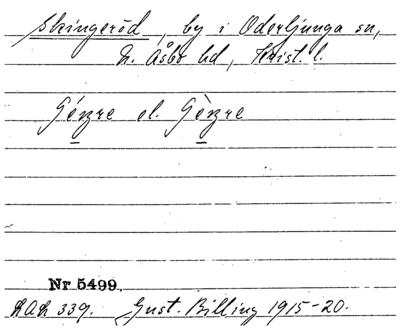 Skingeröd, by i Oderljunga sn,
N. Åsbo hd, Krist. l.
Gézre el. Gèzre
Nr 5499.
LAL 339. Gust. Billing 1915-20.